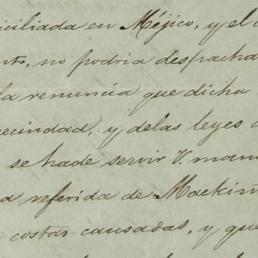 ciliada en Méjico, y el
no podria despacha
la renuncia que dicha
vecindad, y de las leyes
se hade servir V. man
a referida de Mackin
costas causadas, y que